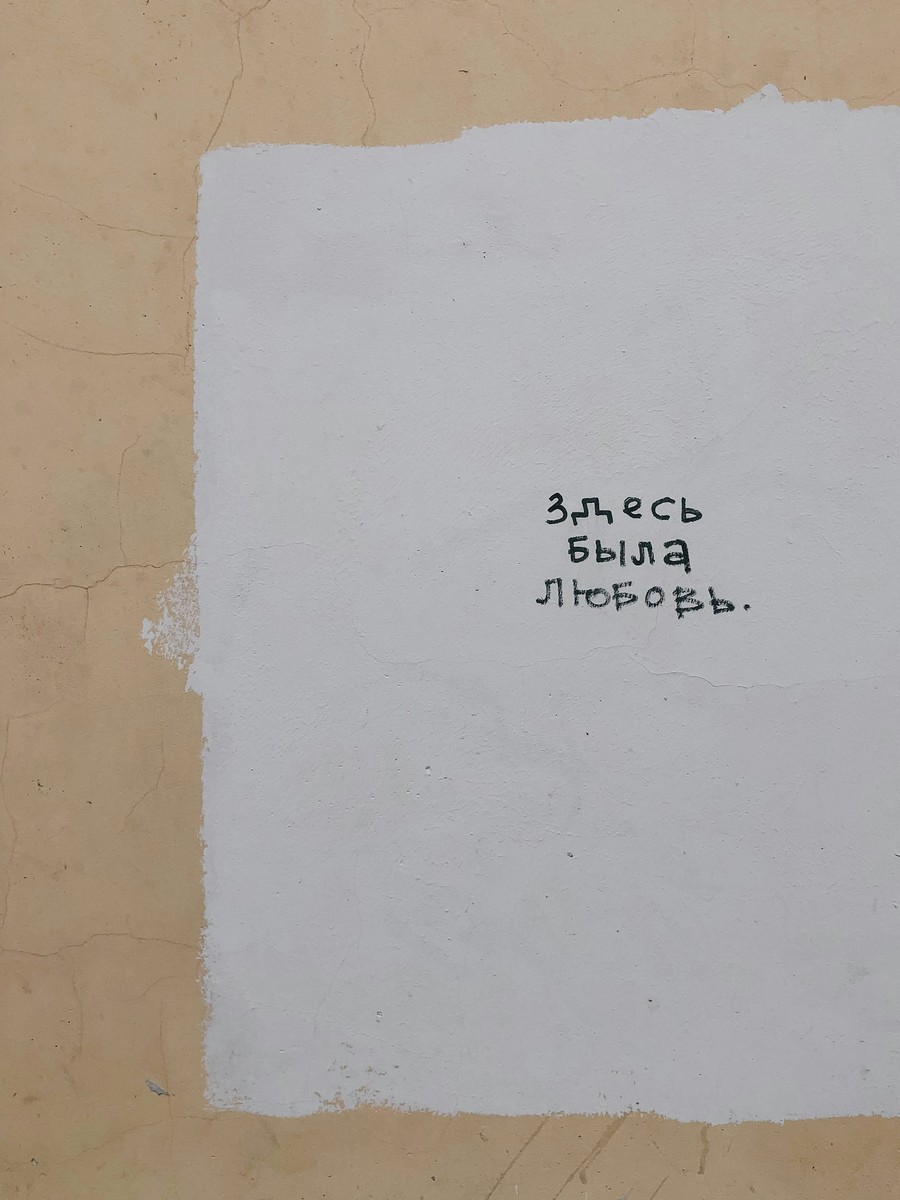 здесь
была
любовь.